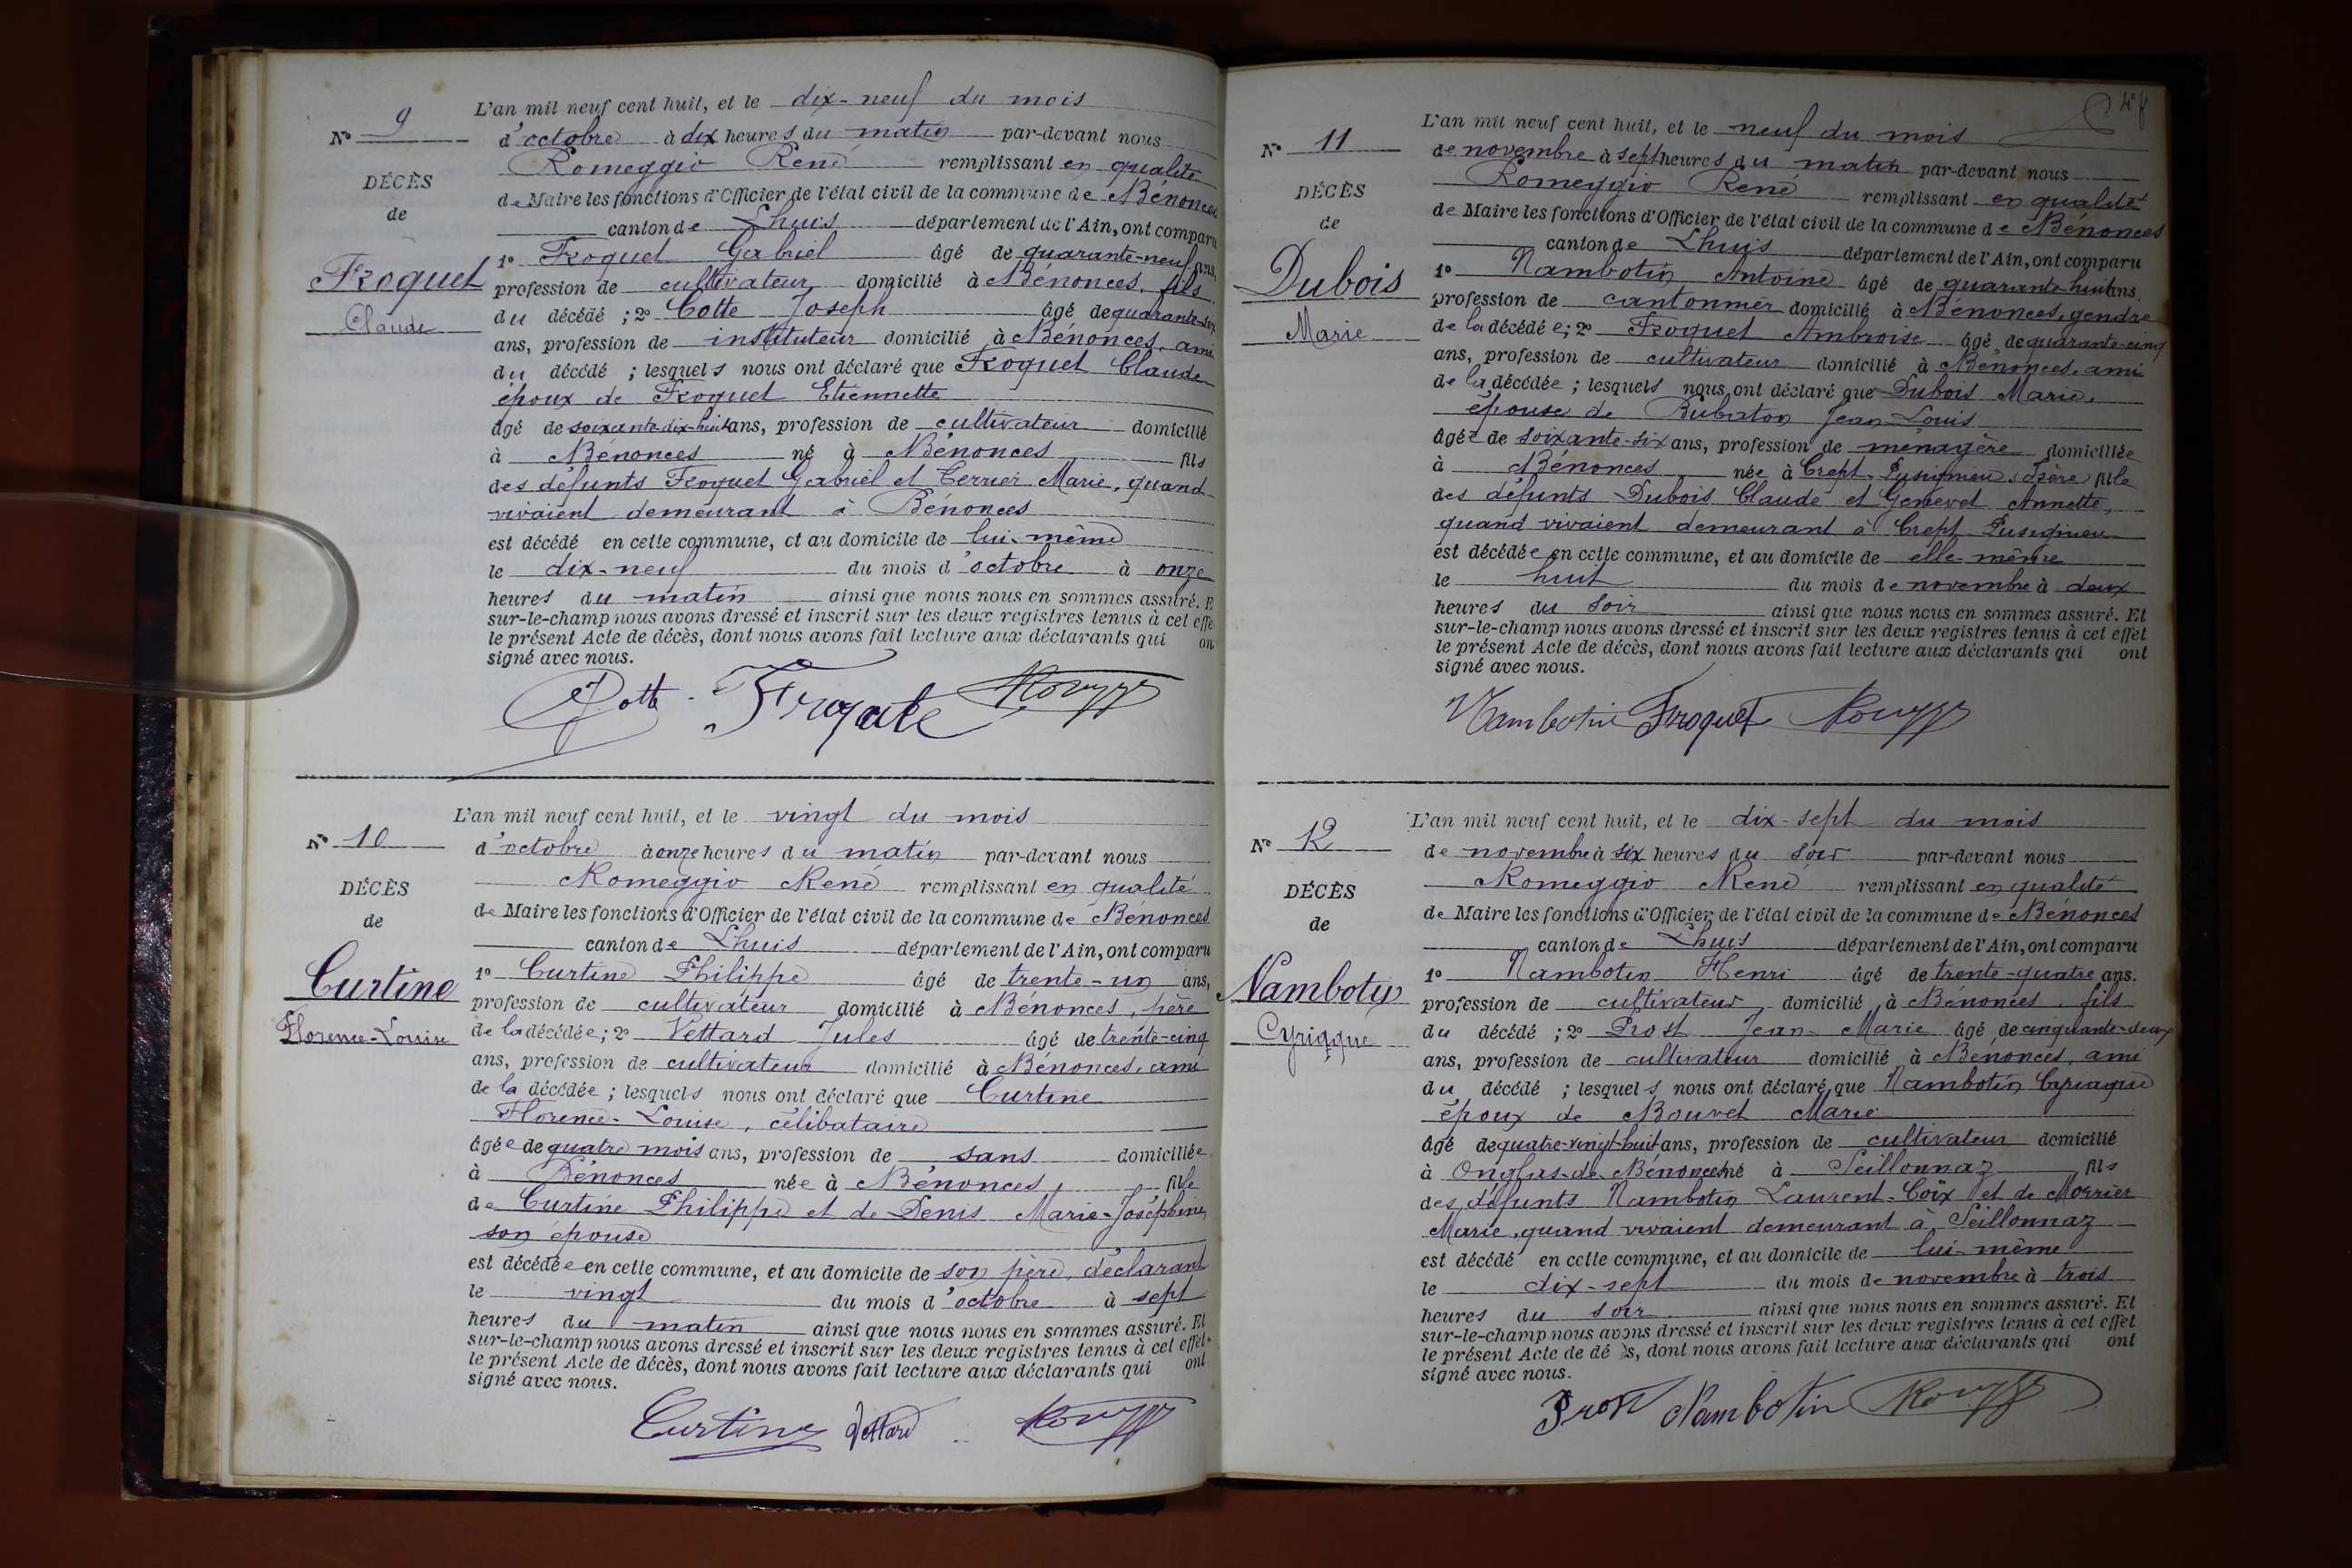 L'an mil neuf cent huit, et le dix-neuf du mois
N° 9
d'octobre à dix heures du matin par-devant nous
Romeggio René remplissant en qualité
DÉCÈS
de Maire les fonctions d'Officier de l'état civil de la commune de Bénonces
de
canton de Lhuis département de l'Ain, ont comparu
Froquet
Claude
1° Froquet Gabriel âgé de quarante-neuf ans,
profession de cultivateur domicilié à Bénonces, fils
du décédé ; 2° Cotte Joseph âgé de quarante-six
ans, profession de instituteur domicilié à Bénonces, ami
du décédé ; lesquels nous ont déclaré que Froquet Claude
époux de Froquet Etiennette
âgé de soixante-dix-huit ans, profession de cultivateur domicilié
à Bénonces né à Bénonces fils
des défunts Froquet Gabriel et Terrier Marie, quand
vivaient demeurant à Bénonces
est décédé en cette commune, et au domicile de lui-même
le dix-neuf du mois d'octobre à onze
heures du matin ainsi que nous nous en sommes assuré. E
sur-le-champ nous avons dressé et inscrit sur les deux registres tenus à cet effe
le présent Acte de décès, dont nous avons fait lecture aux déclarants qui on
signé avec nous.
Cotte Froquet
L'an mil neuf cent huit, et le vingt du mois
N° 10
d'octobre à onze heures du matin par-devant nous
Romeggio René remplissant en qualité
DÉCÈS
de Maire les fonctions d'Officier de l'état civil de la commune de Bénonces
de
canton de Lhuis département de l'Ain, ont comparu
Curtine
Florence-Louise
1° Curtine Philippe âgé de trente-un ans,
profession de cultivateur domicilié à Bénonces, père
de la décédée ; 2° Vettard Jules âgé de trente-cinq
ans, profession de cultivateur domicilié à Bénonces, ami
de la décédée ; lesquels nous ont déclaré que Curtine
Florence-Louise, célibataire
âgée de quatre mois ans, profession de sans domiciliée
à Bénonces née à Bénonces, fille
de Curtine Philippe et de Denis Marie-Joséphine,
son épouse
est décédée en cette commune, et au domicile de son père, déclarant
le vingt du mois d'octobre à sept
heures du matin ainsi que nous nous en sommes assuré. Et
sur-le-champ nous avons dressé et inscrit sur les deux registres tenus à cet effet
le présent Acte de décès, dont nous avons fait lecture aux déclarants qui ont
signé avec nous.
Curtine Vettard
L'an mil neuf cent huit, et le neuf du mois
N° 11
de novembre à sept heures du matin par-devant nous
Romeggio René remplissant en qualité
DÉCÈS
de Maire les fonctions d'Officier de l'état civil de la commune de Bénonces
de
canton de Lhuis département de l'Ain, ont comparu
Dubois
Marie
1° Nambotin Antoine âgé de quarante-huit ans.
profession de cantonnier domicilié à Bénonces, gendre
de la décédée ; 2° Froquet Ambroise âgé de quarante-cinq
ans, profession de cultivateur domicilié à Bénonces, ami
de la décédée ; lesquels nous ont déclaré que Dubois Marie,
épouse de Bubaton Jean-Louis
âgée de soixante-six ans, profession de ménagère domiciliée
à Bénonces née à Crept-Pusignieu (Isère) fille
des défunts Dubois Claude et Genevet Annette,
quand vivaient demeurant à Crept-Pusignieu
est décédée en cette commune, et au domicile de elle-même
le huit du mois de novembre à deux
heures du soir ainsi que nous nous en sommes assuré. Et
sur-le-champ nous avons dressé et inscrit sur les deux registres tenus à cet effet
le présent Acte de décès, dont nous avons fait lecture aux déclarants qui ont
signé avec nous.
Nambotin Froquet
L'an mil neuf cent huit, et le dix-sept du mois
N° 12
de novembre à six heures du soir par-devant nous
Romeggio René remplissant en qualité
DÉCÈS
de Maire les fonctions d'Officier de l'état civil de la commune de Bénonces
de
canton de Lhuis département de l'Ain, ont comparu
Nambotin
Cyriaque
1° Nambotin Henri âgé de trente-quatre ans.
profession de cultivateur domicilié à Bénonces, fils
du décédé ; 2° Prost Jean-Marie âgé de cinquante-deux
ans, profession de cultivateur domicilié à Bénonces, ami
du décédé ; lesquels nous ont déclaré que Nambotin Cyriaque
époux de Bouvet Marie
âgé de quatre-vingt-huit ans, profession de cultivateur domicilié
à Onglas-de-Bénonces né à Seillonnaz fils
des défunts Nambotin Laurent-Coïx et de Morrier
Marie, quand vivaient demeurant à Seillonnaz
est décédé en cette commune, et au domicile de lui-même
le dix-sept du mois de novembre à trois
heures du soir ainsi que nous nous en sommes assuré. Et
sur-le-champ nous avons dressé et inscrit sur les deux registres tenus à cet effet
le présent Acte de dé s, dont nous avons fait lecture aux déclarants qui ont
signé avec nous.
Prost Nambotin